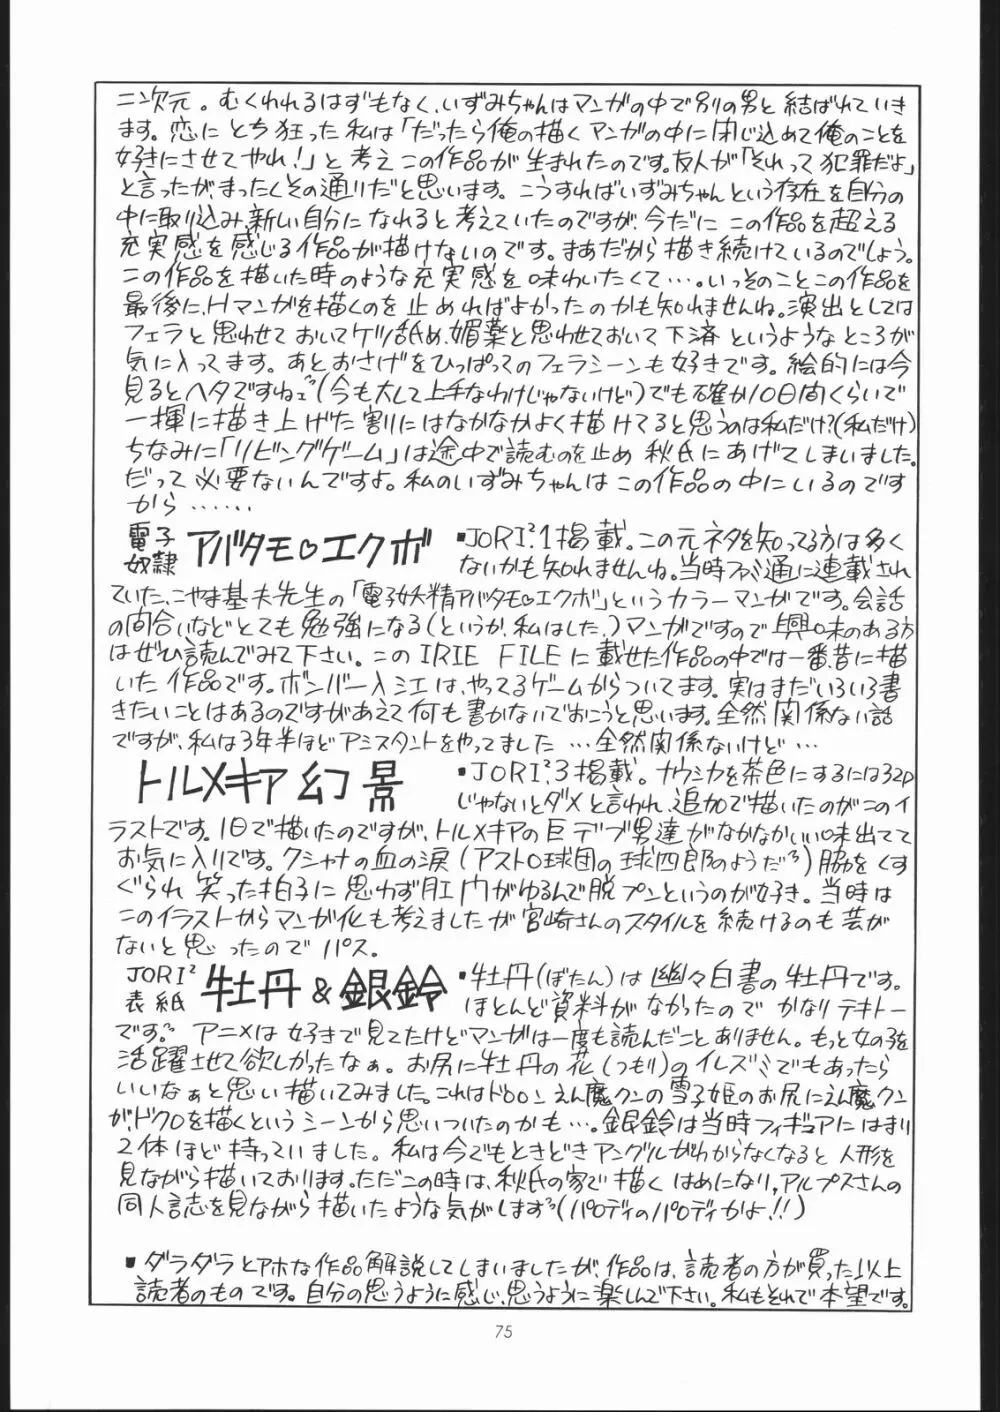 二次元。むくわれるはずもなく、いずみちゃんはマンガの中で別の男と結ばれていき
ます。恋にとち狂った私は「だったら俺の描くマンガの中に閉じ込めて俺のことを
好きにさせてやれ!」と考えこの作品が生まれたのです。友人が「それって犯罪だよ」
と言ったが、まったくその通りだと思います。こうすればいずみちゃんという存在を自分の
中に取り込み新しい自分になれると考えていたのですが、今だにこの作品を超える
充実感を感じる作品が描けないのです。まあだから描き続けているのでしょう。
この作品を描いた時のような充実感を味わいたくて…。いっそのことこの作品を
最後に、Hマンガを描くのを止めればよかったのかも知れませんね。演出としては
フェラと思わせておいてケツ舐め、媚薬と思わせておいて下済というようなところが
気に入ってます。あとおさげをひっぱってのフェラシーンも好きです。絵的には今
見るとヘタですねェ(今も大して上手なわけじゃないけど)でも確か10日間くらいで
一揮に描き上げた割にはなかなかよく描けてると思うのは私だけ?(私だけ)
ちなみに「リビングゲーム」は途中で読むのを止め秋氏にあげてしまいました。
だって必要ないんですよ。私のいずみちゃんはこの作品の中にいるのです
から……
電子奴隷 アバタモ♡エクボ ▪JORI²1掲載。この元ネタを知ってる方は多く
ないかも知れませんね。当時ファミ通に連載され
ていた、こやま基夫先生の「電子妖精アバタモ♡エクボ」というカラーマンガです。会話
の間合いなどとても勉強になる(というか、私はした、)マンガですので興味のある方
はぜひ読んでみて下さい。このIRIE FILEに載せた作品の中では一番昔に描
いた作品です。ボンバー入江は、やってるゲームからついてます。実はまだいろいろ書
きたいことはあるのですがあえて何も書かないでおこうと思います。全然関係ない話
ですが、私は3年半ほどアシスタントをやってました…全然関係ないけど…
トルメキア幻景 ▪JORI²3掲載。ナウシカを茶色にするには32P
じゃないとダメと言われ、追加で描いたのがこのイ
ラストです。1日で描いたのですが、トルメキアの巨デブ男達がなかなかいい味出てて
お気に入りです。クシャナの血の涙(アストロ球団の球四郎のようだ)脇をくす
ぐられ笑った拍子に思わず肛門がゆるんで脱プンというのが好き。当時は
このイラストからマンガ化も考えましたが宮崎さんのスタイルを続けるのも芸が
ないと思ったのでパス。
JORI²表紙 牡丹&銀鈴 ▪牡丹(ぼたん)は幽々白書の牡丹です。
ほとんど資料がなかったのでかなりテキトー
です。アニメは好きで見てたけどマンガは一度も読んだことありません。もっと女の子を
活躍させて欲しかったなぁ。お尻に牡丹の花(つもり)のイレズミでもあったら
いいなぁと思い描いてみました。これはドロロンえん魔クンの雪子姫のお尻にえん魔クン
が、ドクロを描くというシーンから思いついたのかも…。銀鈴は当時フィギュアにはまり
2体ほど持っていました。私は今でもときどきアングルがわからなくなると人形を
見ながら描いております。ただこの時は、秋氏の家で描くはめになり、アルプスさんの
同人誌を見ながら描いたような気がします(パロディのパロディかよ!!)
▪ダラダラとアホな作品解説してしまいましたが、作品は、読者の方が買った以上
読者のものです。自分の思うように感じ、思うように楽しんで下さい。私もそれで本望です。
75